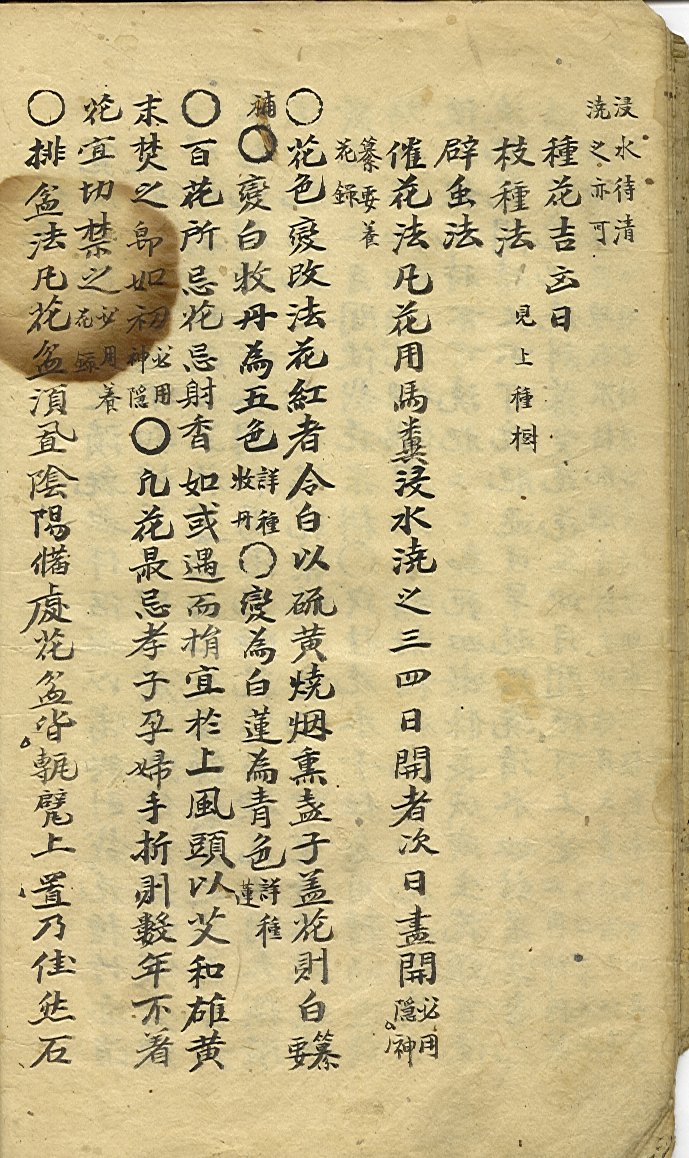 浸水待清
澆之亦可
種花吉凶日
枝種法 見上種樹
辟虫法
催花法凡花用馬糞浸水澆之三四日開者次日盡開 必用神隱
纂要養花錄
○花色變改法花紅者令白以硫黃燒烟熏盞子盖花則白 纂要
補○變白牧丹為五色 詳種牧丹 ○變為白蓮為青色 詳種蓮
○百花所忌花忌射香如或遇而損宜於上風頭以艾和雄黃
末焚之卽如初 必用神隱 ○凡花最忌孝子孕婦手折則數年不着
花宜切禁之 必用養花錄
○排盆法凡花盆須置陰陽備處花盆皆甎甓上置乃佳然石